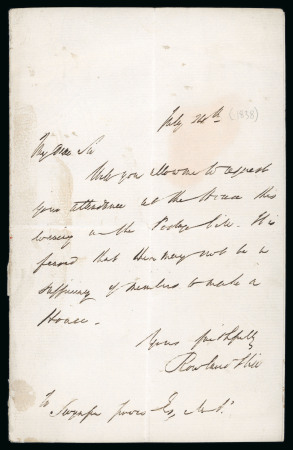 July 24th (1838)
My dear Sir
Will you allow me to request
your attendance at the House this
evening on the Postage bill. It is
feared that there may not be a
sufficiency of members to make a
House.
Yours faithfully
Rowland Hill
To
Esq M.P.